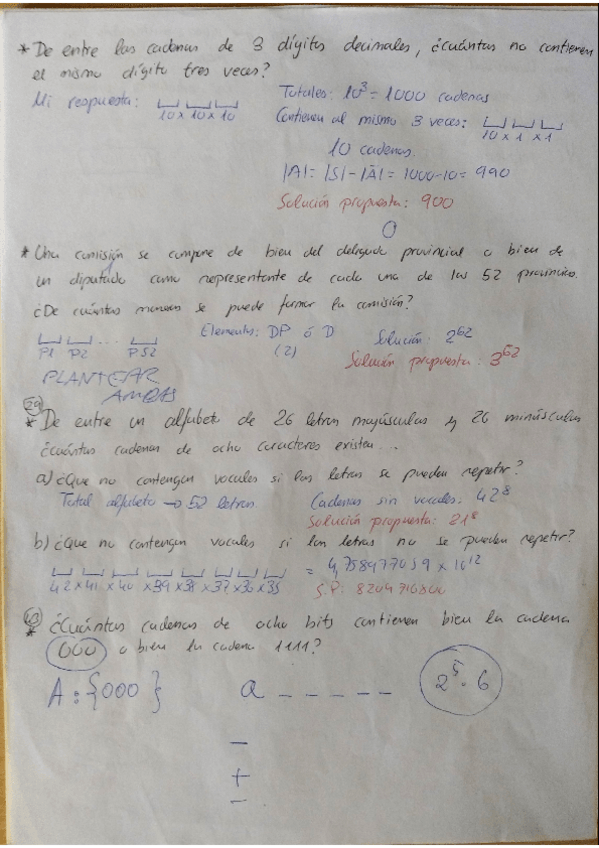 * De entre las cadenas de 3 dígitos decimales, ¿cuántas no contienen
el mismo dígito tres veces?
Mi respuesta: 10 x 10 x 10
Totales: 10³ = 1000 cadenas
Contienen al mismo 3 veces: 10 x 1 x 1
10 cadenas
|A| = |S| - |Ā| = 1000-10 = 990
Solución propuesta: 900
* Una comisión se compone de bien del delegado provincial o bien de
un diputado como representante de cada una de las 52 provincias.
¿De cuántas maneras se puede formar la comisión?
P1 P2 ... P52
Elementos: DP ó D
(2)
Solución: 2⁵²
Solución propuesta: 3⁵²
PLANTEAR
AMBAS
29
* De entre un alfabeto de 26 letras mayúsculas y 26 minúsculas
¿cuántas cadenas de ocho caracteres existen...
a) ¿Que no contengan vocales si las letras se pueden repetir?
Total alfabeto → 52 letras
Cadenas sin vocales: 42⁸
Solución propuesta: 21⁸
b) ¿Que no contengan vocales si las letras no se pueden repetir?
42 x 41 x 40 x 39 x 38 x 37 x 36 x 35
= 4,758977059 x 10¹²
S.P: 8204716800
43
* ¿Cuántas cadenas de ocho bits contienen bien la cadena
000 o bien la cadena 1111?
A: {000}
a _ _ _ _ _
2⁵ · 6
–
+
–